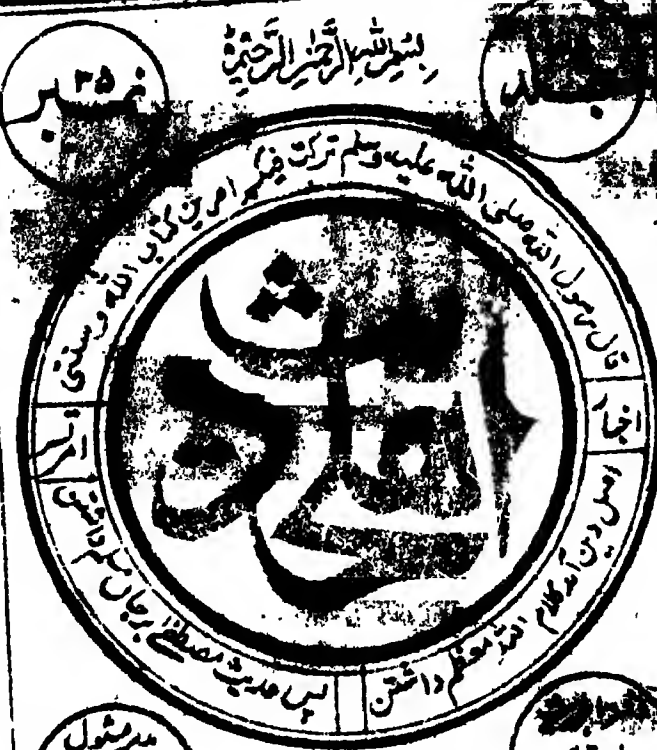 بسم الله الرحمن الرحيم
جلد
نمبر ۳۵
قال رسول الله صلى الله عليه وسلم تركت فيكم امرين كتاب الله وسنتي
اخبار
اہلحدیث
اصل دین آمد کلام الله معظم داشتن
پس حدیث مصطفےٰ برجاں مسلم داشتن
مدیر مسئول